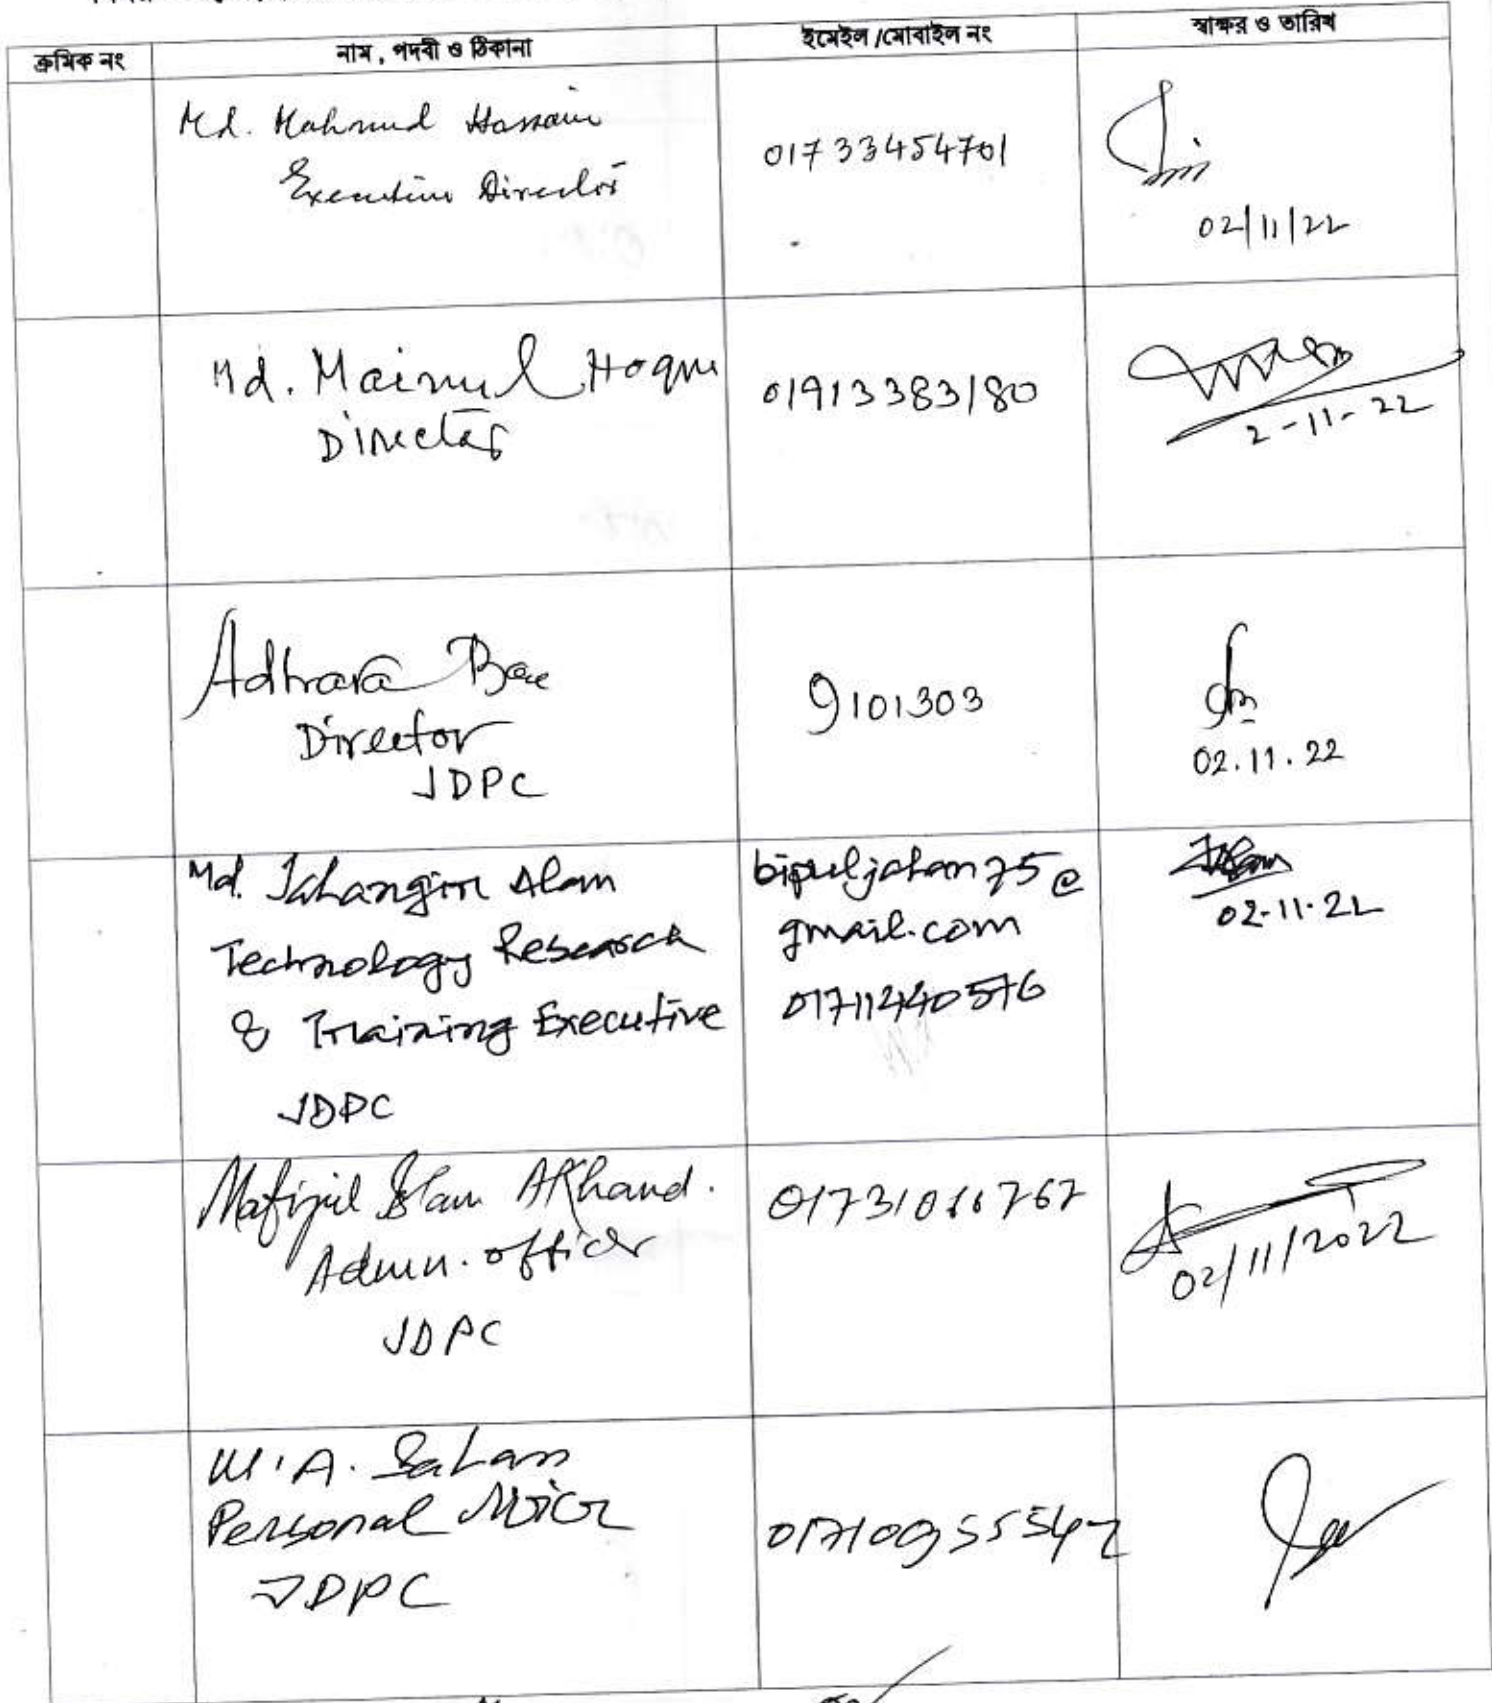 ক্রমিক নং
নাম , পদবী ও ঠিকানা
ইমেইল /মোবাইল নং
স্বাক্ষর ও তারিখ
Md. Mahmud Hossain
Executive Director
01733454701
02/11/22
Md. Mainul Hoque
Director
01913383180
2-11-22
Adhara
Director
JDPC
9101303
02.11.22
Md. Jahangir Alam
Technology Research
& Training Executive
JDPC
bipuljahan75@
gmail.com
01711240576
02-11-22
Mafizul Islam AKhand.
Admn. officer
JDPC
02/11/2022
M.A. Salam
Personal
JDPC